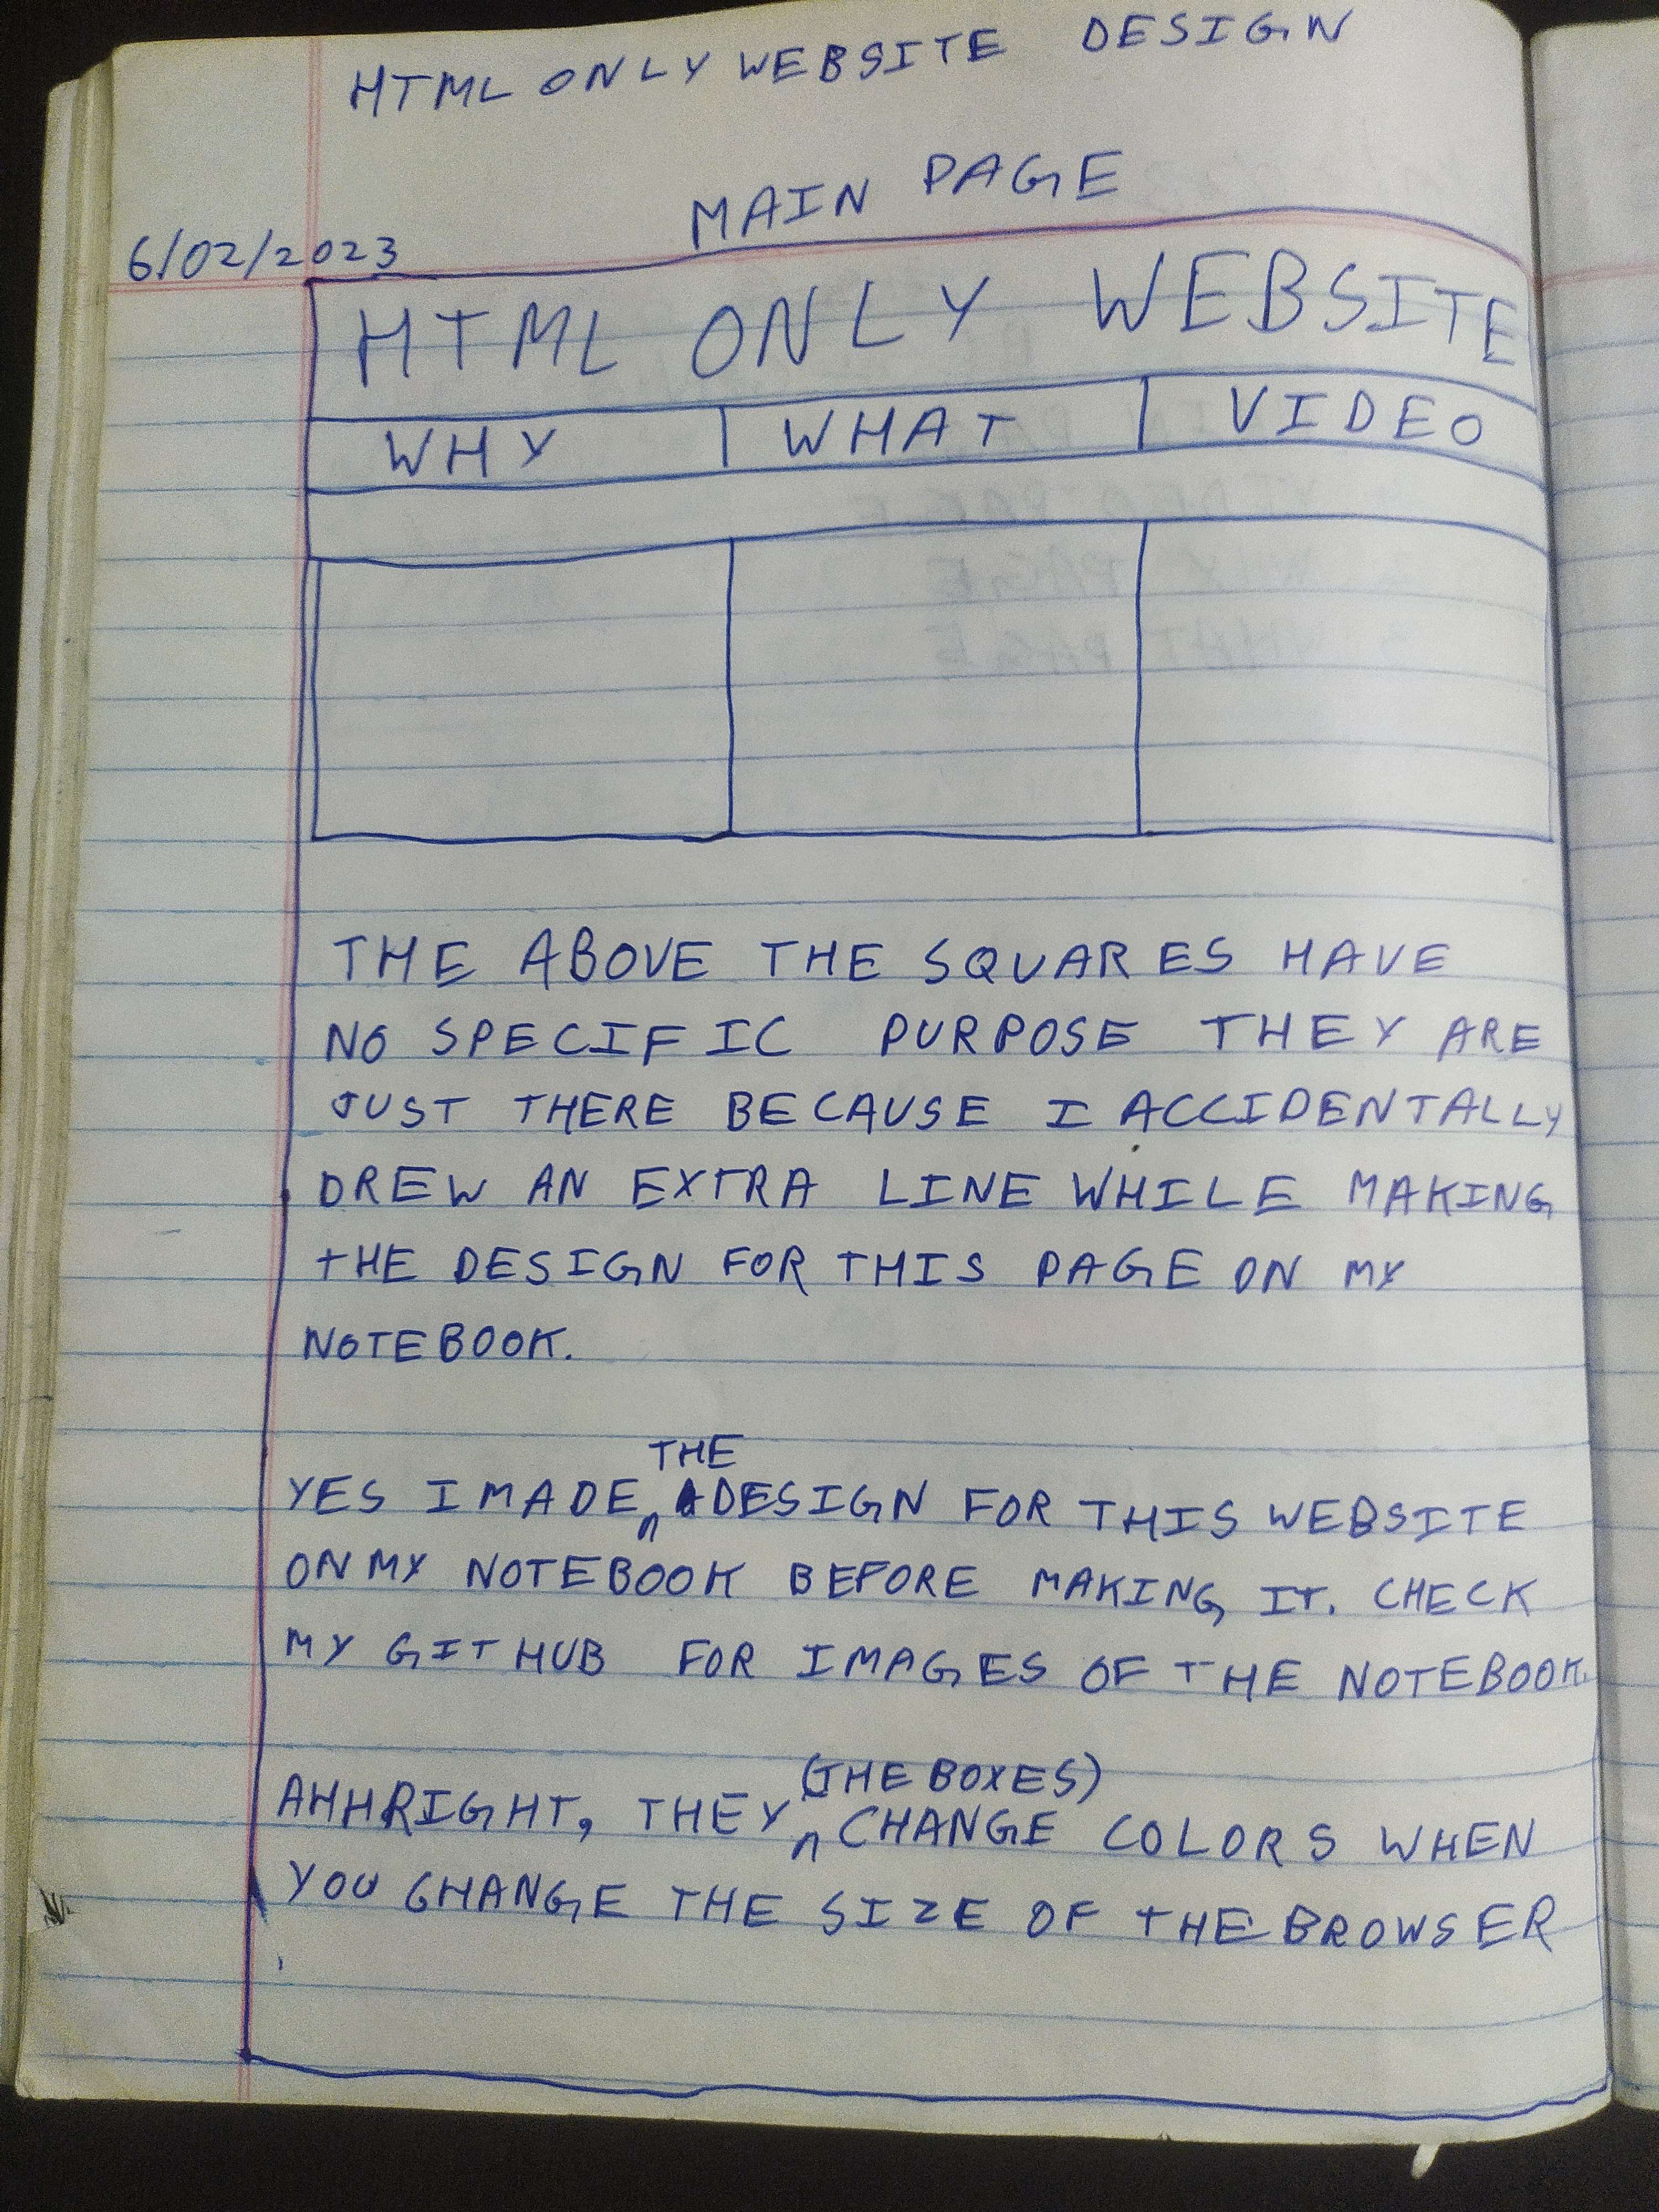 HTML ONLY WEBSITE DESIGN
MAIN PAGE
6/02/2023
HTML ONLY WEBSITE
WHY WHAT VIDEO
THE ABOVE THE SQUARES HAVE
NO SPECIFIC PURPOSE THEY ARE
JUST THERE BECAUSE I ACCIDENTALLY
DREW AN EXTRA LINE WHILE MAKING
THE DESIGN FOR THIS PAGE ON MY
NOTEBOOK.
THE
YES I MADE DESIGN FOR THIS WEBSITE
ON MY NOTEBOOK BEFORE MAKING IT. CHECK
MY GITHUB FOR IMAGES OF THE NOTEBOOK.
(THE BOXES)
AHHRIGHT, THEY CHANGE COLORS WHEN
YOU CHANGE THE SIZE OF THE BROWSER